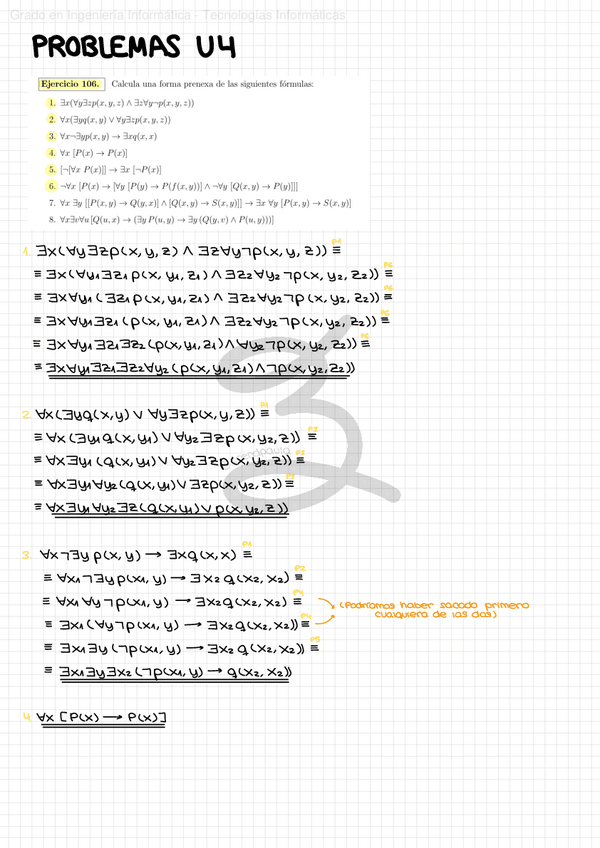 Grado en Ingeniería Informática - Tecnologías Informáticas
PROBLEMAS U4
Ejercicio 106. Calcula una forma prenexa de las siguientes fórmulas:
1. ∃x(∀y∃zp(x, y, z) ∧ ∃z∀y¬p(x, y, z))
2. ∀x(∃yq(x, y) ∨ ∀y∃zp(x, y, z))
3. ∀x¬∃yp(x, y) → ∃xq(x, x)
4. ∀x [P(x) → P(x)]
5. [¬[∀x P(x)]] → ∃x [¬P(x)]
6. ¬∀x [P(x) → [∀y [P(y) → P(f(x, y))] ∧ ¬∀y [Q(x, y) → P(y)]]]
7. ∀x ∃y [[P(x, y) → Q(y, x)] ∧ [Q(x, y) → S(x, y)]] → ∃x ∀y [P(x, y) → S(x, y)]
8. ∀x∃v∀u [Q(u, x) → (∃y P(u, y) → ∃y (Q(y, v) ∧ P(u, y)))]
1. ∃x(∀y∃zp(x, y, z) ∧ ∃z∀y¬p(x, y, z)) ≡ P1
≡ ∃x(∀y1∃z1 p(x, y1, z1) ∧ ∃z2∀y2 ¬p(x, y2, z2)) ≡ P6
≡ ∃x∀y1(∃z1 p(x, y1, z1) ∧ ∃z2∀y2 ¬p(x, y2, z2)) ≡ P6
≡ ∃x∀y1∃z1(p(x, y1, z1) ∧ ∃z2∀y2 ¬p(x, y2, z2)) ≡ P6
≡ ∃x∀y1∃z1∃z2(p(x, y1, z1) ∧ ∀y2 ¬p(x, y2, z2)) ≡
≡ ∃x∀y1∃z1∃z2∀y2(p(x, y1, z1) ∧ ¬p(x, y2, z2))
2. ∀x(∃yq(x, y) ∨ ∀y∃zp(x, y, z)) ≡ P1
≡ ∀x(∃y1 q(x, y1) ∨ ∀y2∃zp(x, y2, z)) ≡ P3
≡ ∀x∃y1(q(x, y1) ∨ ∀y2∃zp(x, y2, z)) ≡ P3
≡ ∀x∃y1∀y2(q(x, y1) ∨ ∃zp(x, y2, z)) ≡
≡ ∀x∃y1∀y2∃z(q(x, y1) ∨ p(x, y2, z))
3. ∀x¬∃y p(x, y) → ∃xq(x, x) ≡ P1
≡ ∀x1¬∃y p(x1, y) → ∃x2 q(x2, x2) ≡ P2
≡ ∀x1 ∀y ¬p(x1, y) → ∃x2 q(x2, x2) ≡ P4
≡ ∃x1(∀y¬p(x1, y) → ∃x2 q(x2, x2)) ≡ P4
(Podríamos haber sacado primero
cualquiera de las dos)
≡ ∃x1∃y(¬p(x1, y) → ∃x2 q(x2, x2)) ≡ P5
≡ ∃x1∃y∃x2(¬p(x1, y) → q(x2, x2))
4. ∀x [P(x) → P(x)]